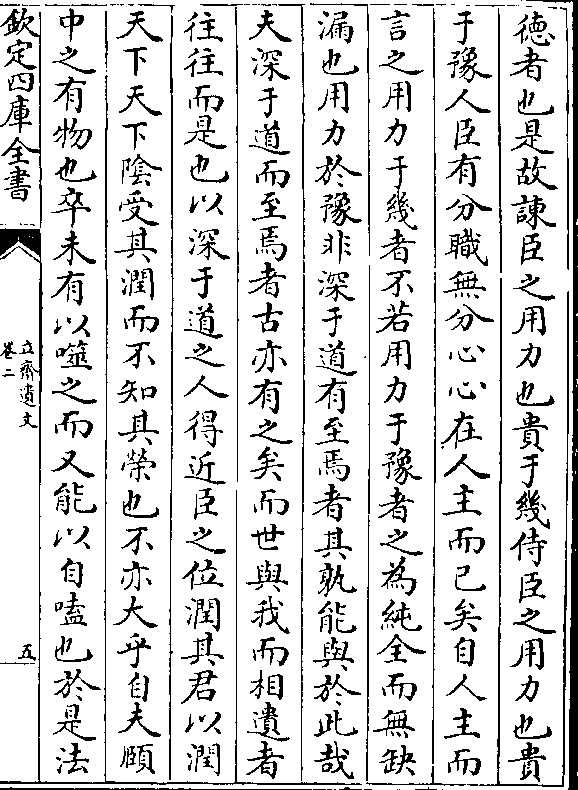 德者也是故諫臣之用力也貴于幾侍臣之用力也貴
于豫人臣有分職無分心心在人主而已矣自人主而
言之用力于幾者不若用力于豫者之為純全而無缺
漏也用力於豫非深于道有至焉者其孰能與於此哉
夫深于道而至焉者古亦有之矣而世與我而相遺者
往往而是也以深于道之人得近臣之位潤其君以潤
天下天下陰受其潤而不知其榮也不亦大乎自夫頤
中之有物也卒未有以噬之而又能以自嗑也於是法
欽定四庫全書
立齋遺文
卷二
五